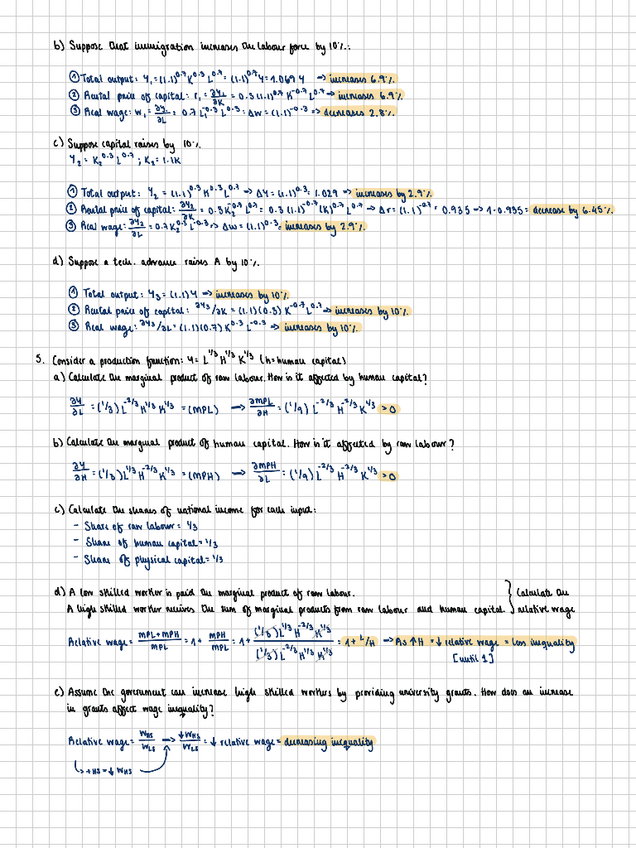 b) Suppose that immigration increases the labour force by 10%.:
① Total output: Y₁ = (1.1)^0.7 K^0.3 L^0.7 = (1.1)^0.7 Y = 1.069 Y → increases 6.9%
② Rental price of capital: r₁ = ∂Y₁/∂K = 0.3 (1.1)^0.7 K^-0.7 L^0.7 → increases 6.9%
③ Real wage: w₁ = ∂Y₁/∂L = 0.7 L₁^-0.3 K^0.3 = Δw = (1.1)^-0.3 → decreases 2.8%
c) Suppose capital raises by 10%.
Y₂ = K₂^0.3 L^0.7 ; K₂ = 1.1K
① Total output: Y₂ = (1.1)^0.3 K^0.3 L^0.7 → ΔY = (1.1)^0.3 = 1.029 → increases by 2.9%
② Rental price of capital: ∂Y₂/∂K = 0.3 K₂^-0.7 L^0.7 = 0.3 (1.1)^-0.7 (K)^-0.7 L^0.7 → Δr = (1.1)^-0.7 = 0.935 → 1-0.935 = decrease by 6.45%
③ Real wage: ∂Y₂/∂L = 0.7 K₂^0.3 L^-0.3 → Δw = (1.1)^0.3 = increases by 2.9%
d) Suppose a tech. advance raises A by 10%.
① Total output: Y₃ = (1.1) Y → increases by 10%
② Rental price of capital: ∂Y₃/∂K = (1.1)(0.3) K^-0.7 L^0.7 → increases by 10%
③ Real wage: ∂Y₃/∂L = (1.1)(0.7) K^0.3 L^-0.3 → increases by 10%
5. Consider a production function: Y = L^1/3 H^1/3 K^1/3 (H = human capital)
a) Calculate the marginal product of raw labour. How is it affected by human capital?
∂Y/∂L = (1/3) L^-2/3 H^1/3 K^1/3 = (MPL) → ∂MPL/∂H = (1/9) L^-2/3 H^-2/3 K^1/3 > 0
b) Calculate the marginal product of human capital. How is it affected by raw labour?
∂Y/∂H = (1/3) L^1/3 H^-2/3 K^1/3 = (MPH) → ∂MPH/∂L = (1/9) L^-2/3 H^-2/3 K^1/3 > 0
c) Calculate the shares of national income for each input:
- Share of raw labour = 1/3
- Share of human capital = 1/3
- Share of physical capital = 1/3
d) A low skilled worker is paid the marginal product of raw labour. } Calculate the
A high skilled worker receives the sum of marginal products from raw labour and human capital. relative wage
Relative wage = MPL+MPH/MPL = 1 + MPH/MPL = 1 + (1/3) L^1/3 H^-2/3 K^1/3 / (1/3) L^-2/3 H^1/3 K^1/3 = 1 + L/H → As ↑H = ↓ relative wage = less inequality
[until 1]
e) Assume the government can increase high skilled workers by providing university grants. How does an increase
in grants affect wage inequality?
Relative wage = W_HS/W_LS → ↓W_HS/W_LS = ↓ relative wage = decreasing inequality
↳ ↑HS = ↓ W_HS